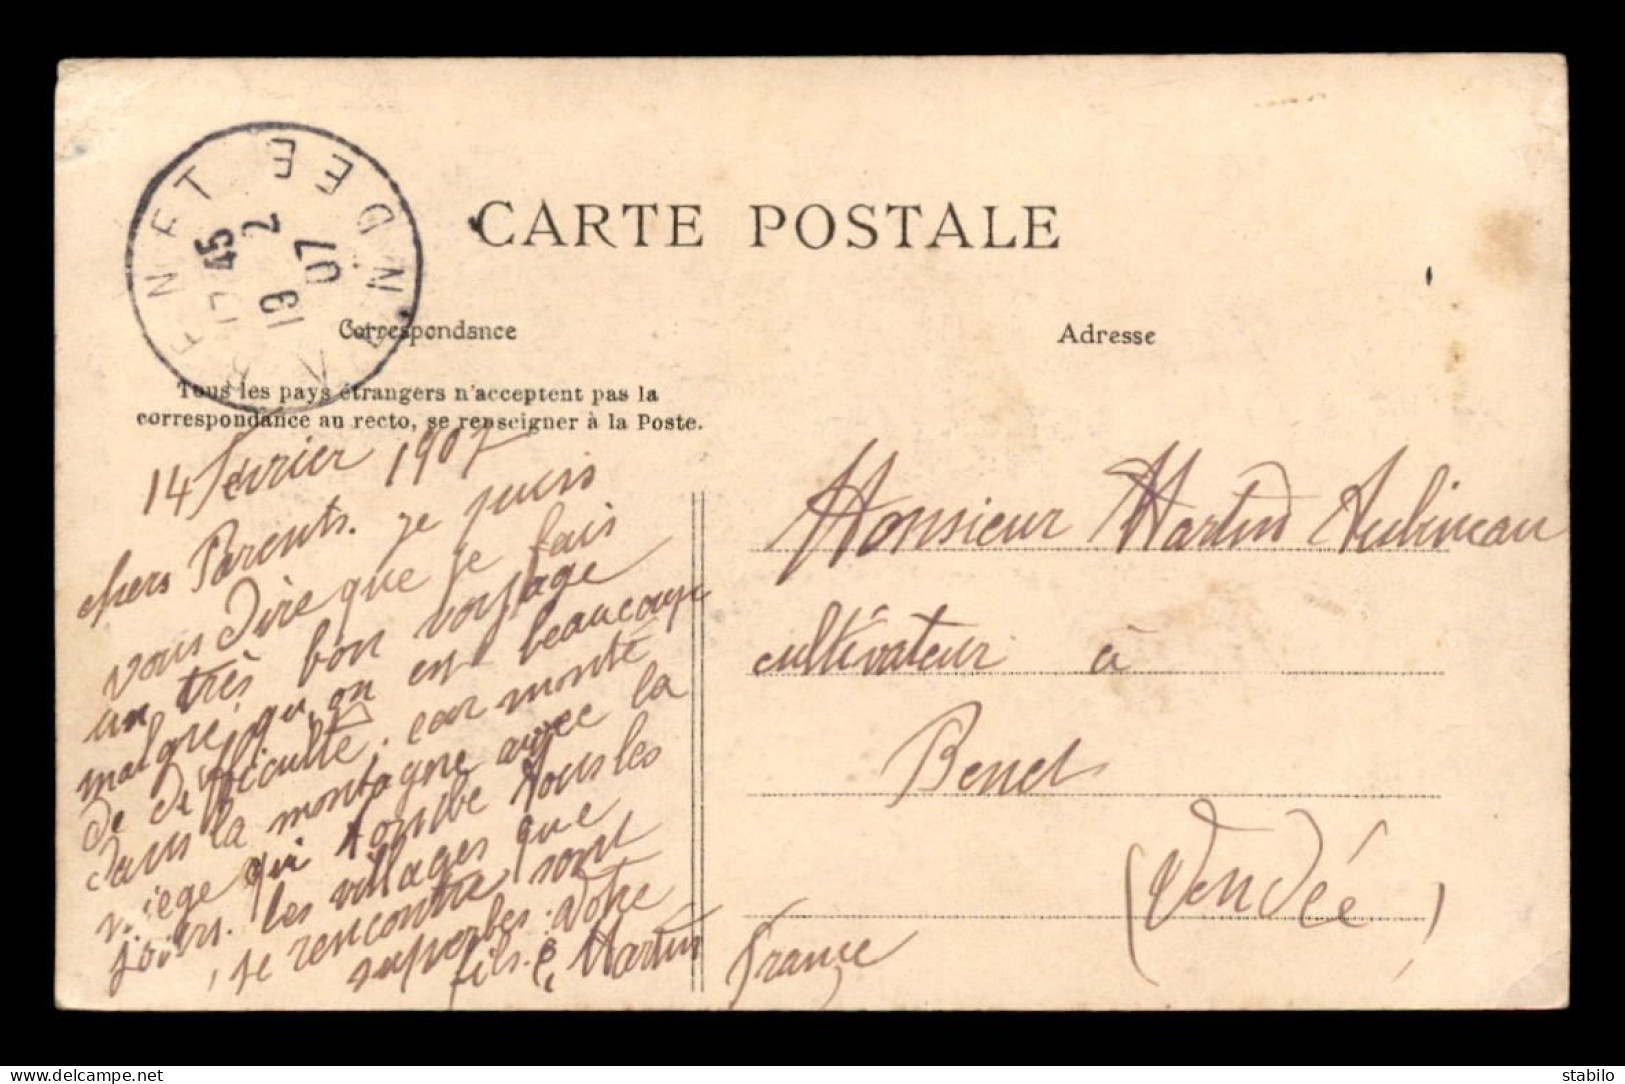 CARTE POSTALE
Correspondance
Adresse
Tous les pays étrangers n'acceptent pas la
correspondance au recto, se renseigner à la Poste.
BENET
VENDEE
17 45
19 2
07
14 Février 1907
chers Parents. je suis
vous dire que je fais
un très bon voyage
malgré qu'on est beaucoup
de difficulté. car monté
dans la montagne avec la
niège qui tombe tous les
jours. les villages que
je rencontre sont
superbes. votre
fils. E, Martin
Monsieur Martin Aubineau
cultivateur à
Benet
(Vendée)
France
delcampe.net
stabilo